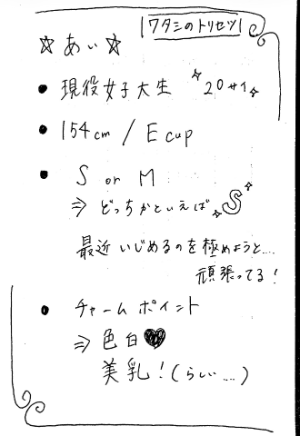 ワタシのトリセツ
☆あい☆
• 現役女子大生 20才
• 154cm / E cup
• S or M
⇒ どっちかといえば S
最近いじめるのを極めようと…
頑張ってる!
• チャームポイント
⇒ 色白♥
美乳!(らしい…)